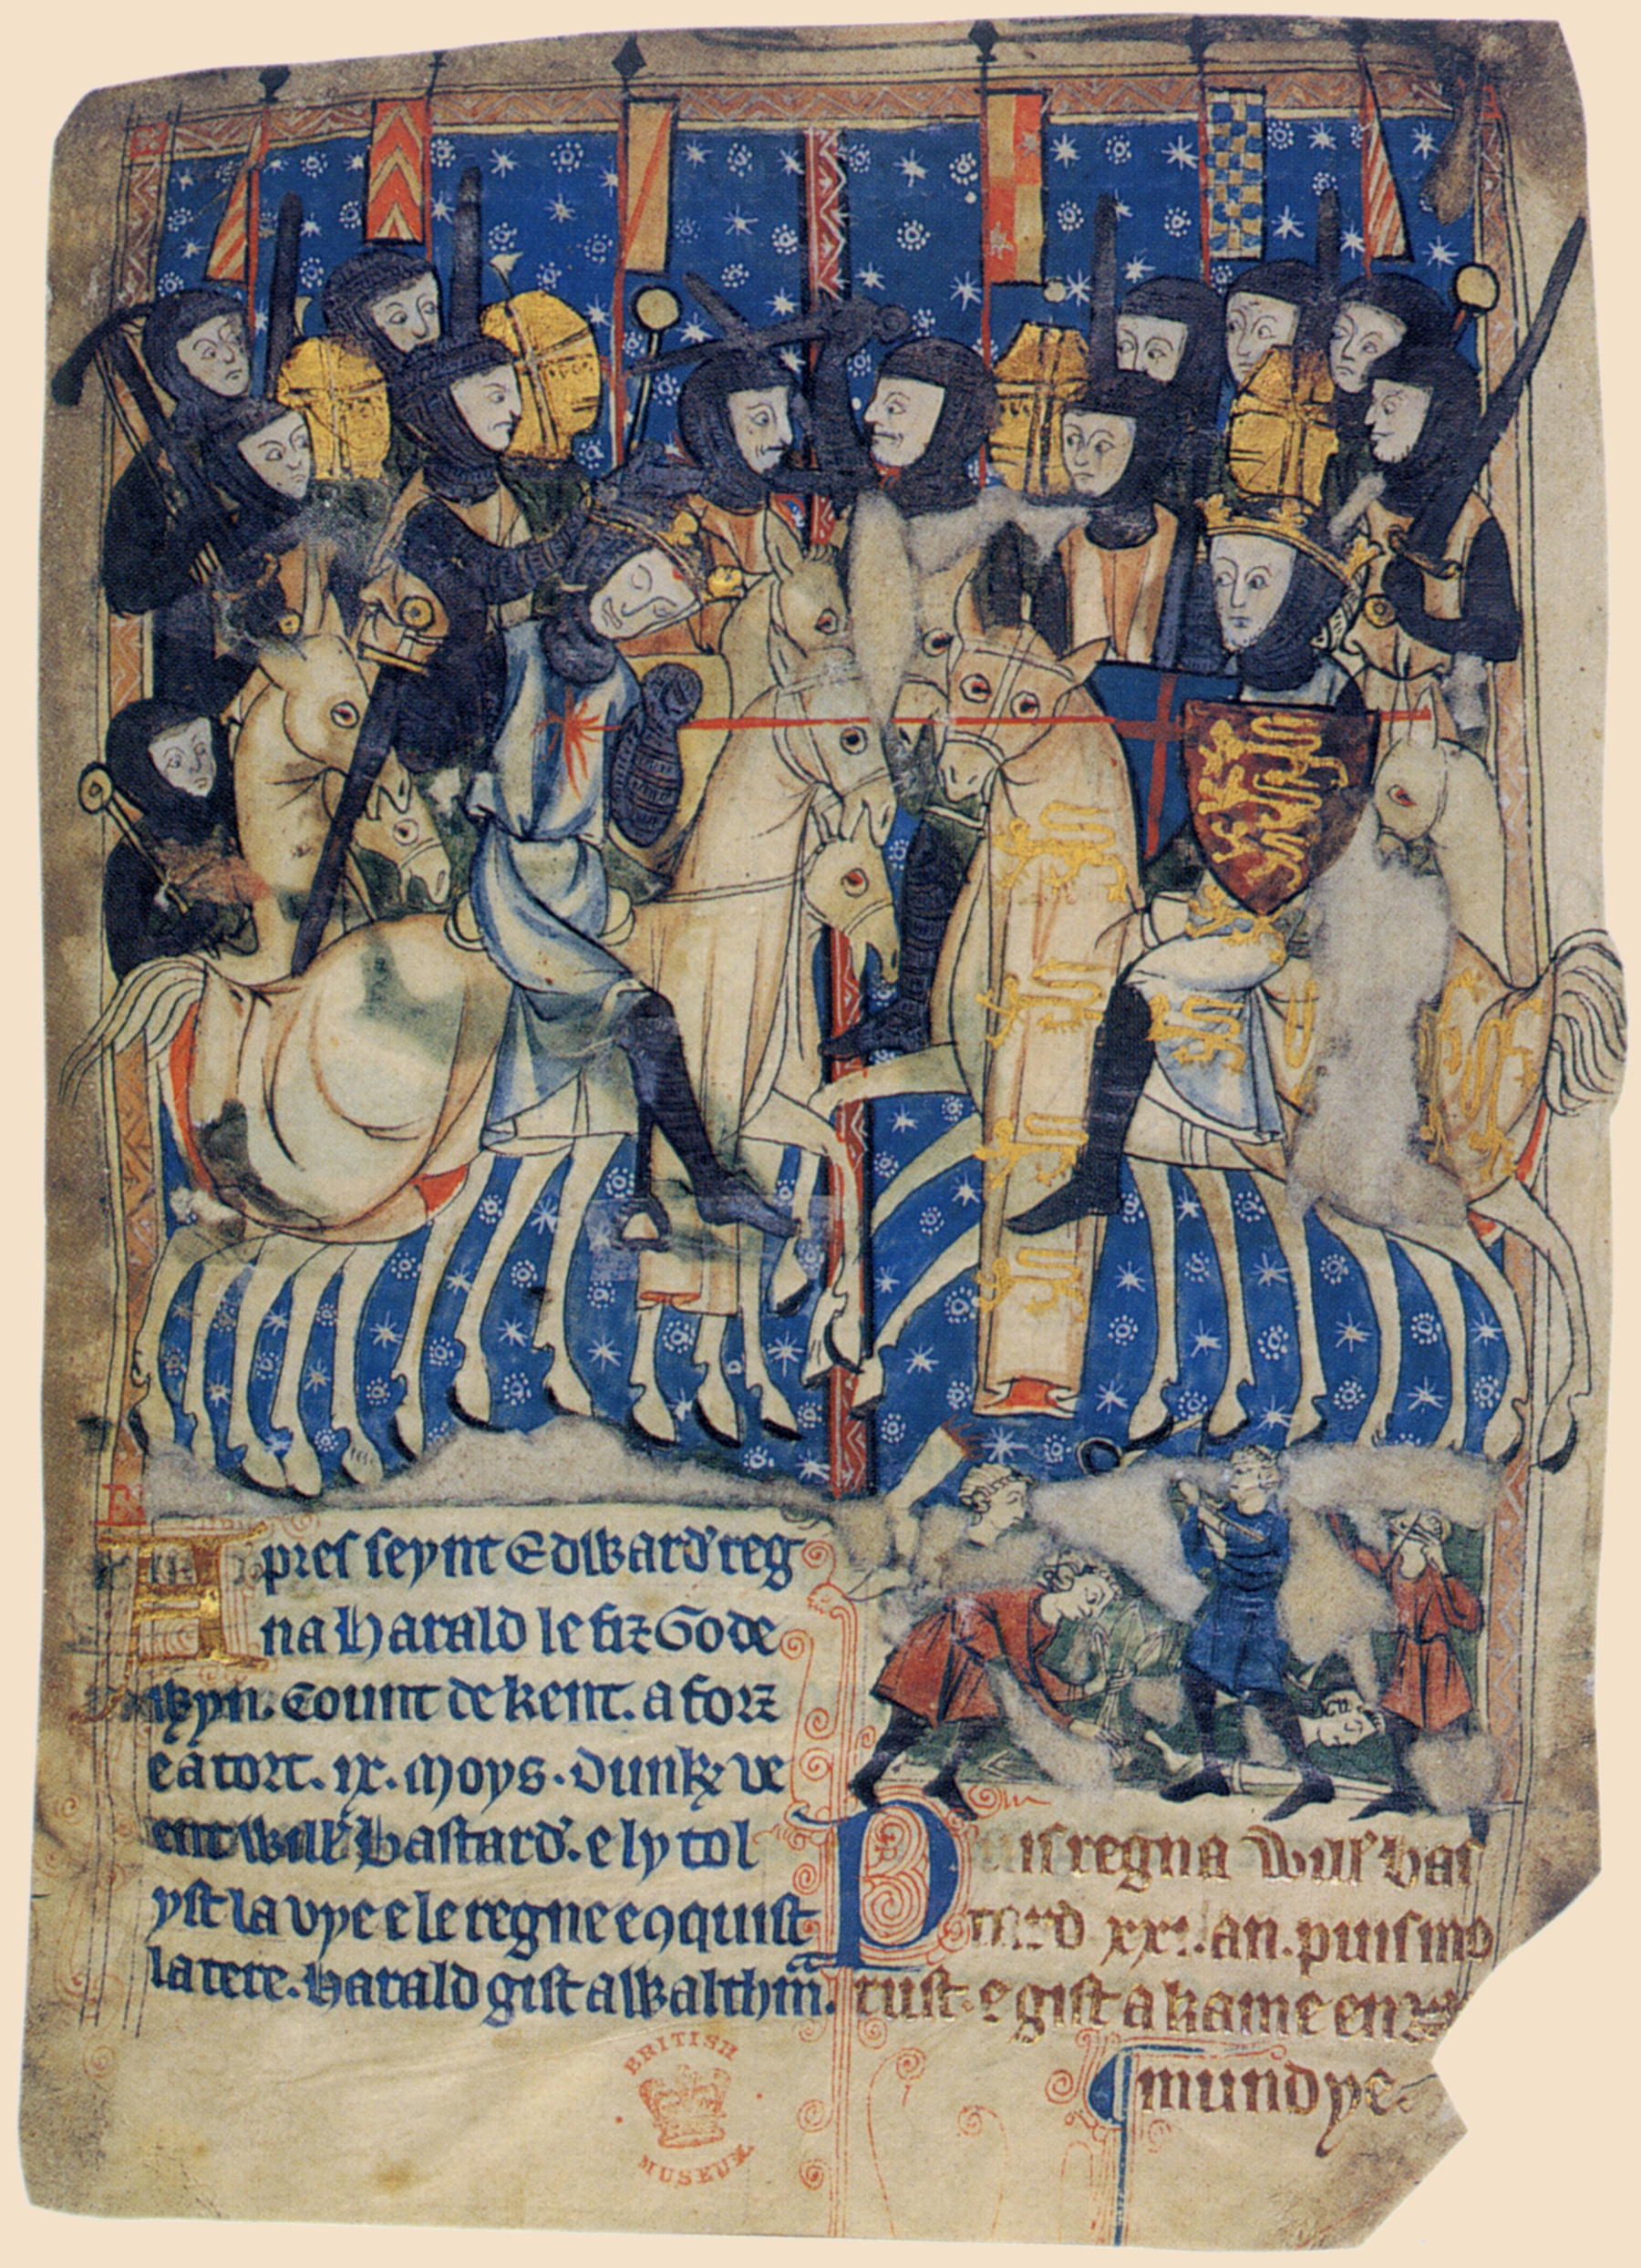 Apres seynt Edward' reg
na Harald le fiz Gode
wyn. Count de kent. a forz
e a tort. ix. moys. dunk ve
ent Will' bastard'. e ly tol
yst la vye e le regne e 9quist
la tere. Harald gist a Walthm̄.
Puis regna Will' bas
tard xxi. an. puis mo
rust. e gist a kame en
mundye.
BRITISH
MUSEUM